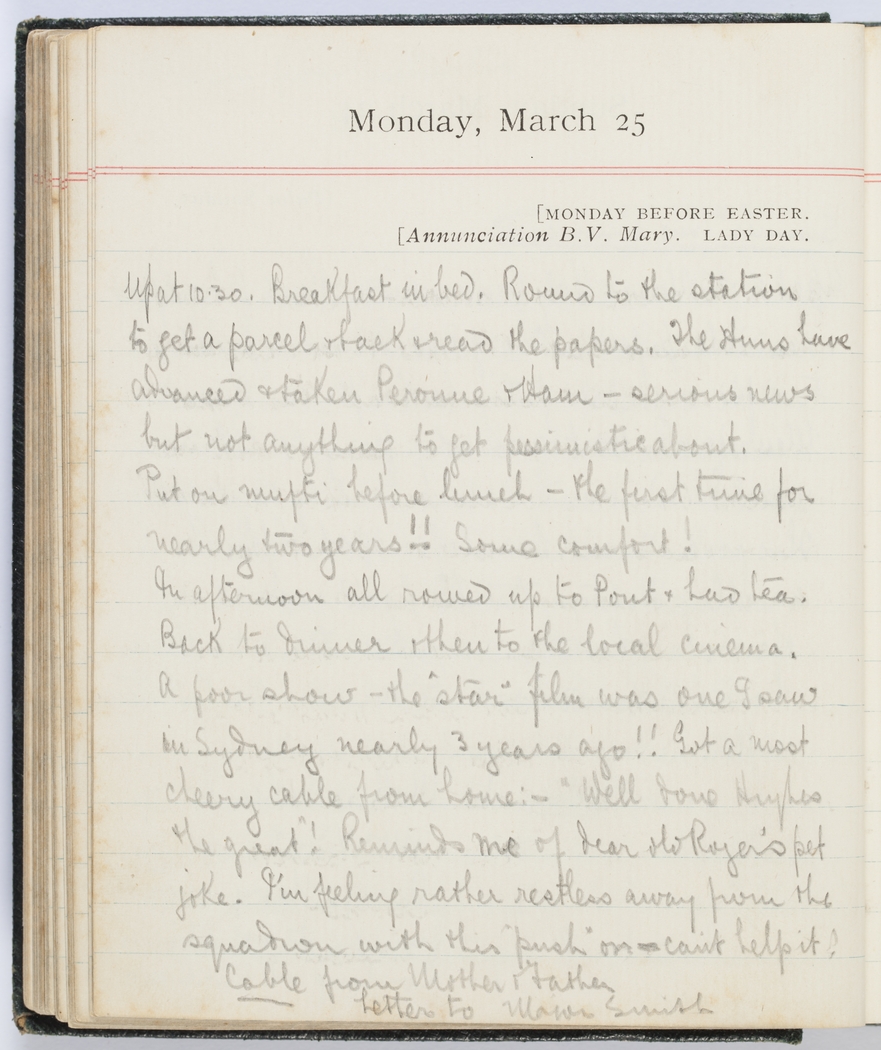 Monday, March 25
[MONDAY BEFORE EASTER.
[Annunciation B.V. Mary. LADY DAY.
Up at 10.30. Breakfast in bed. Round to the station
to get a parcel & back & read the papers. The Huns have
advanced & taken Peronne & Ham – serious news
but not anything to get pessimistic about.
Put on mufti before lunch – the first time for
nearly two years!! Some comfort!
In afternoon all rowed up to Pont & had tea.
Back to dinner & then to the local cinema.
A poor show – the "star" film was one I saw
in Sydney nearly 3 years ago!! Got a most
cheery cable from home:– "Well done Hughes
the great"! Reminds me of dear old Roger's pet
joke. I'm feeling rather restless away from the
squadron with this "push" on – can't help it!
Cable from Mother & Father
Letter to Major Smith